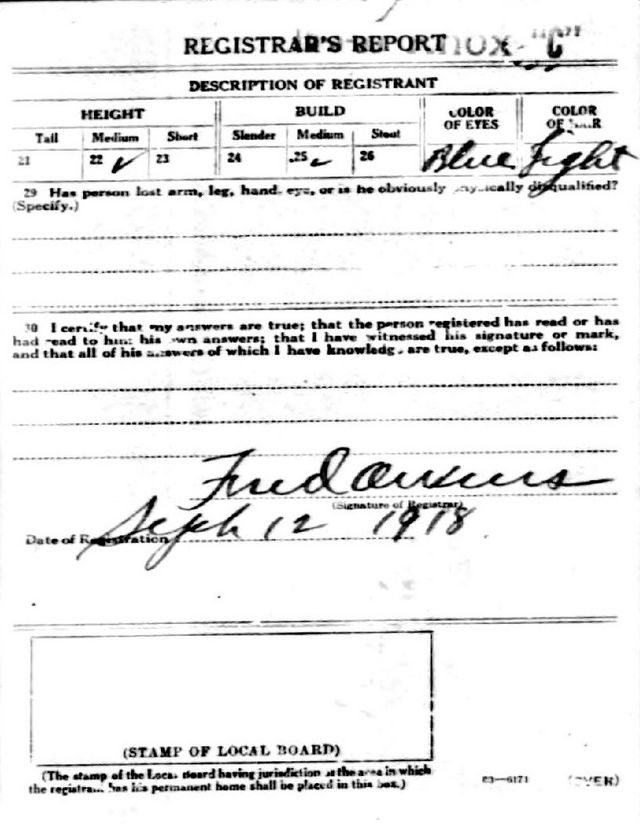 REGISTRAR'S REPORT "C"
DESCRIPTION OF REGISTRANT
HEIGHT BUILD COLOR OF EYES COLOR OF HAIR
Tall Medium Short Slender Medium Stout
21 22 ✓ 23 24 25 ✓ 26 Blue Light
29 Has person lost arm, leg, hand, eye, or is he obviously physically disqualified?
(Specify.)
30 I certify that my answers are true; that the person registered has read or has
had read to him his own answers; that I have witnessed his signature or mark,
and that all of his answers of which I have knowledge are true, except as follows:
Fred
(Signature of Registrar)
Date of Registration Sept 12 1918
(STAMP OF LOCAL BOARD)
(The stamp of the Local Board having jurisdiction of the area in which
the registrant has his permanent home shall be placed in this box.)
03—6171 (OVER)